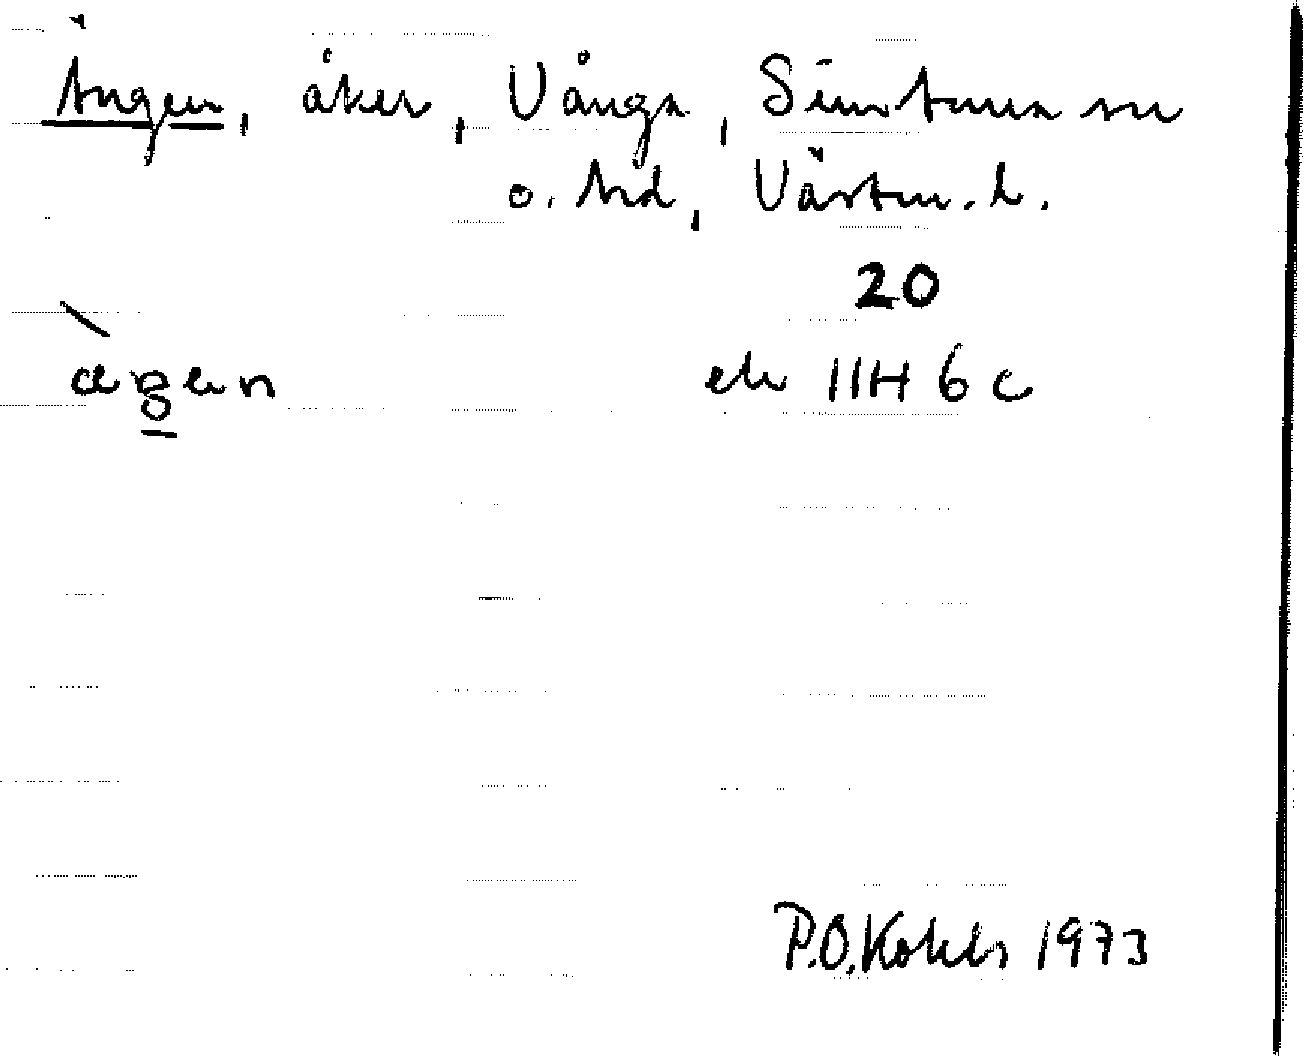 Ängen, åker, Vånga, Simtuna sn
o. hd, Västm. l.
20
ek 11H 6c
P.O. 1973